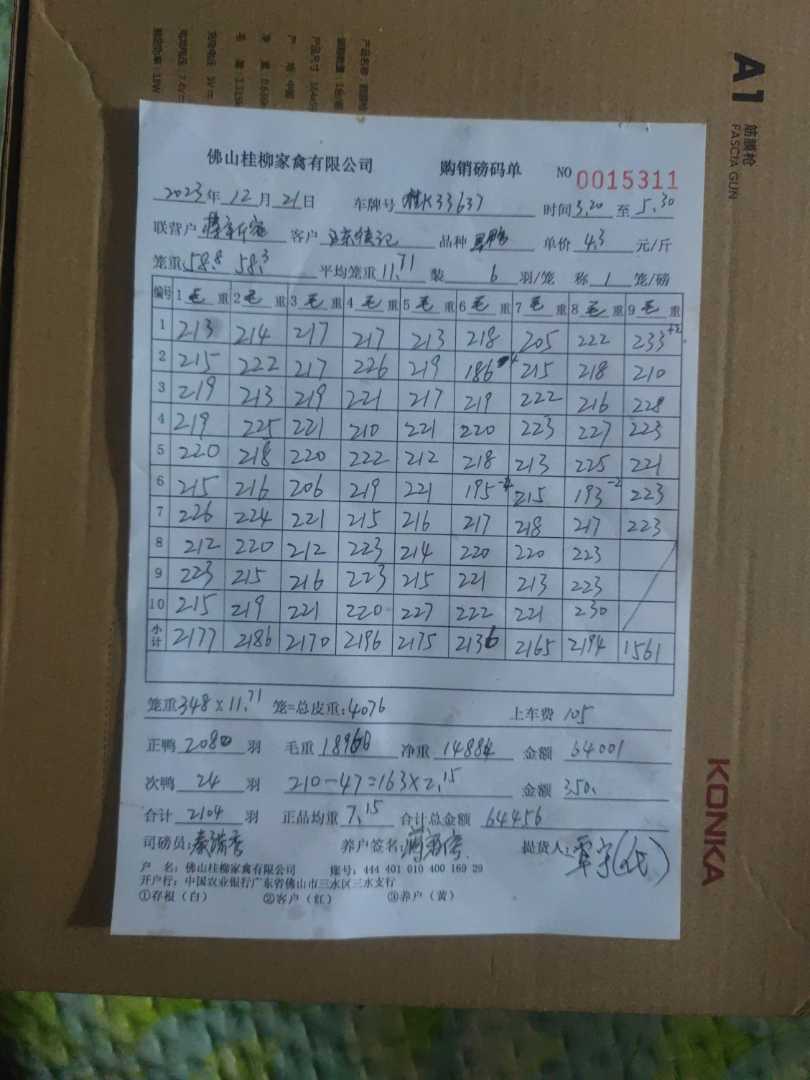 A1
筋膜枪
FASCIA GUN
KONKA
佛山桂柳家禽有限公司 购销磅码单 NO 0015311
2023年12月21日 车牌号 桂K33637 时间3.20至5.30
联营户 客户 品种 单价 4.3 元/斤
笼重:58.8 58.3 平均笼重11.71 装 6 羽/笼 称 1 笼/磅
编号 1毛重 2毛重 3毛重 4毛重 5毛重 6毛重 7毛重 8毛重 9毛重
1 213 214 217 217 213 218 205 222 233
2 215 222 217 226 219 186 215 218 210
3 219 213 219 221 217 219 222 216 228
4 219 225 221 210 221 220 223 227 223
5 220 218 220 222 212 218 213 225 221
6 215 216 206 219 221 195 215 193-2 223
7 226 224 221 215 216 217 218 217 223
8 212 220 212 223 214 220 220 223
9 223 215 216 223 215 221 213 223
10 215 219 221 220 227 222 221 230
小计 2177 2186 2170 2196 2175 2136 2165 2194 1561
笼重348×11.71 笼=总皮重:4076 上车费 105
正鸭 2080 羽 毛重 18960 净重 14884 金额 64001
次鸭 24 羽 210-47=163×2.15 金额 350.
合计 2104 羽 正品均重 7.15 合计总金额 64456
司磅员: 养户签名: 提货人:
户 名:佛山桂柳家禽有限公司 账号:444 401 010 400 169 29
开户行:中国农业银行广东省佛山市三水区三水支行
①存根(白) ②客户(红) ③养户(黄)